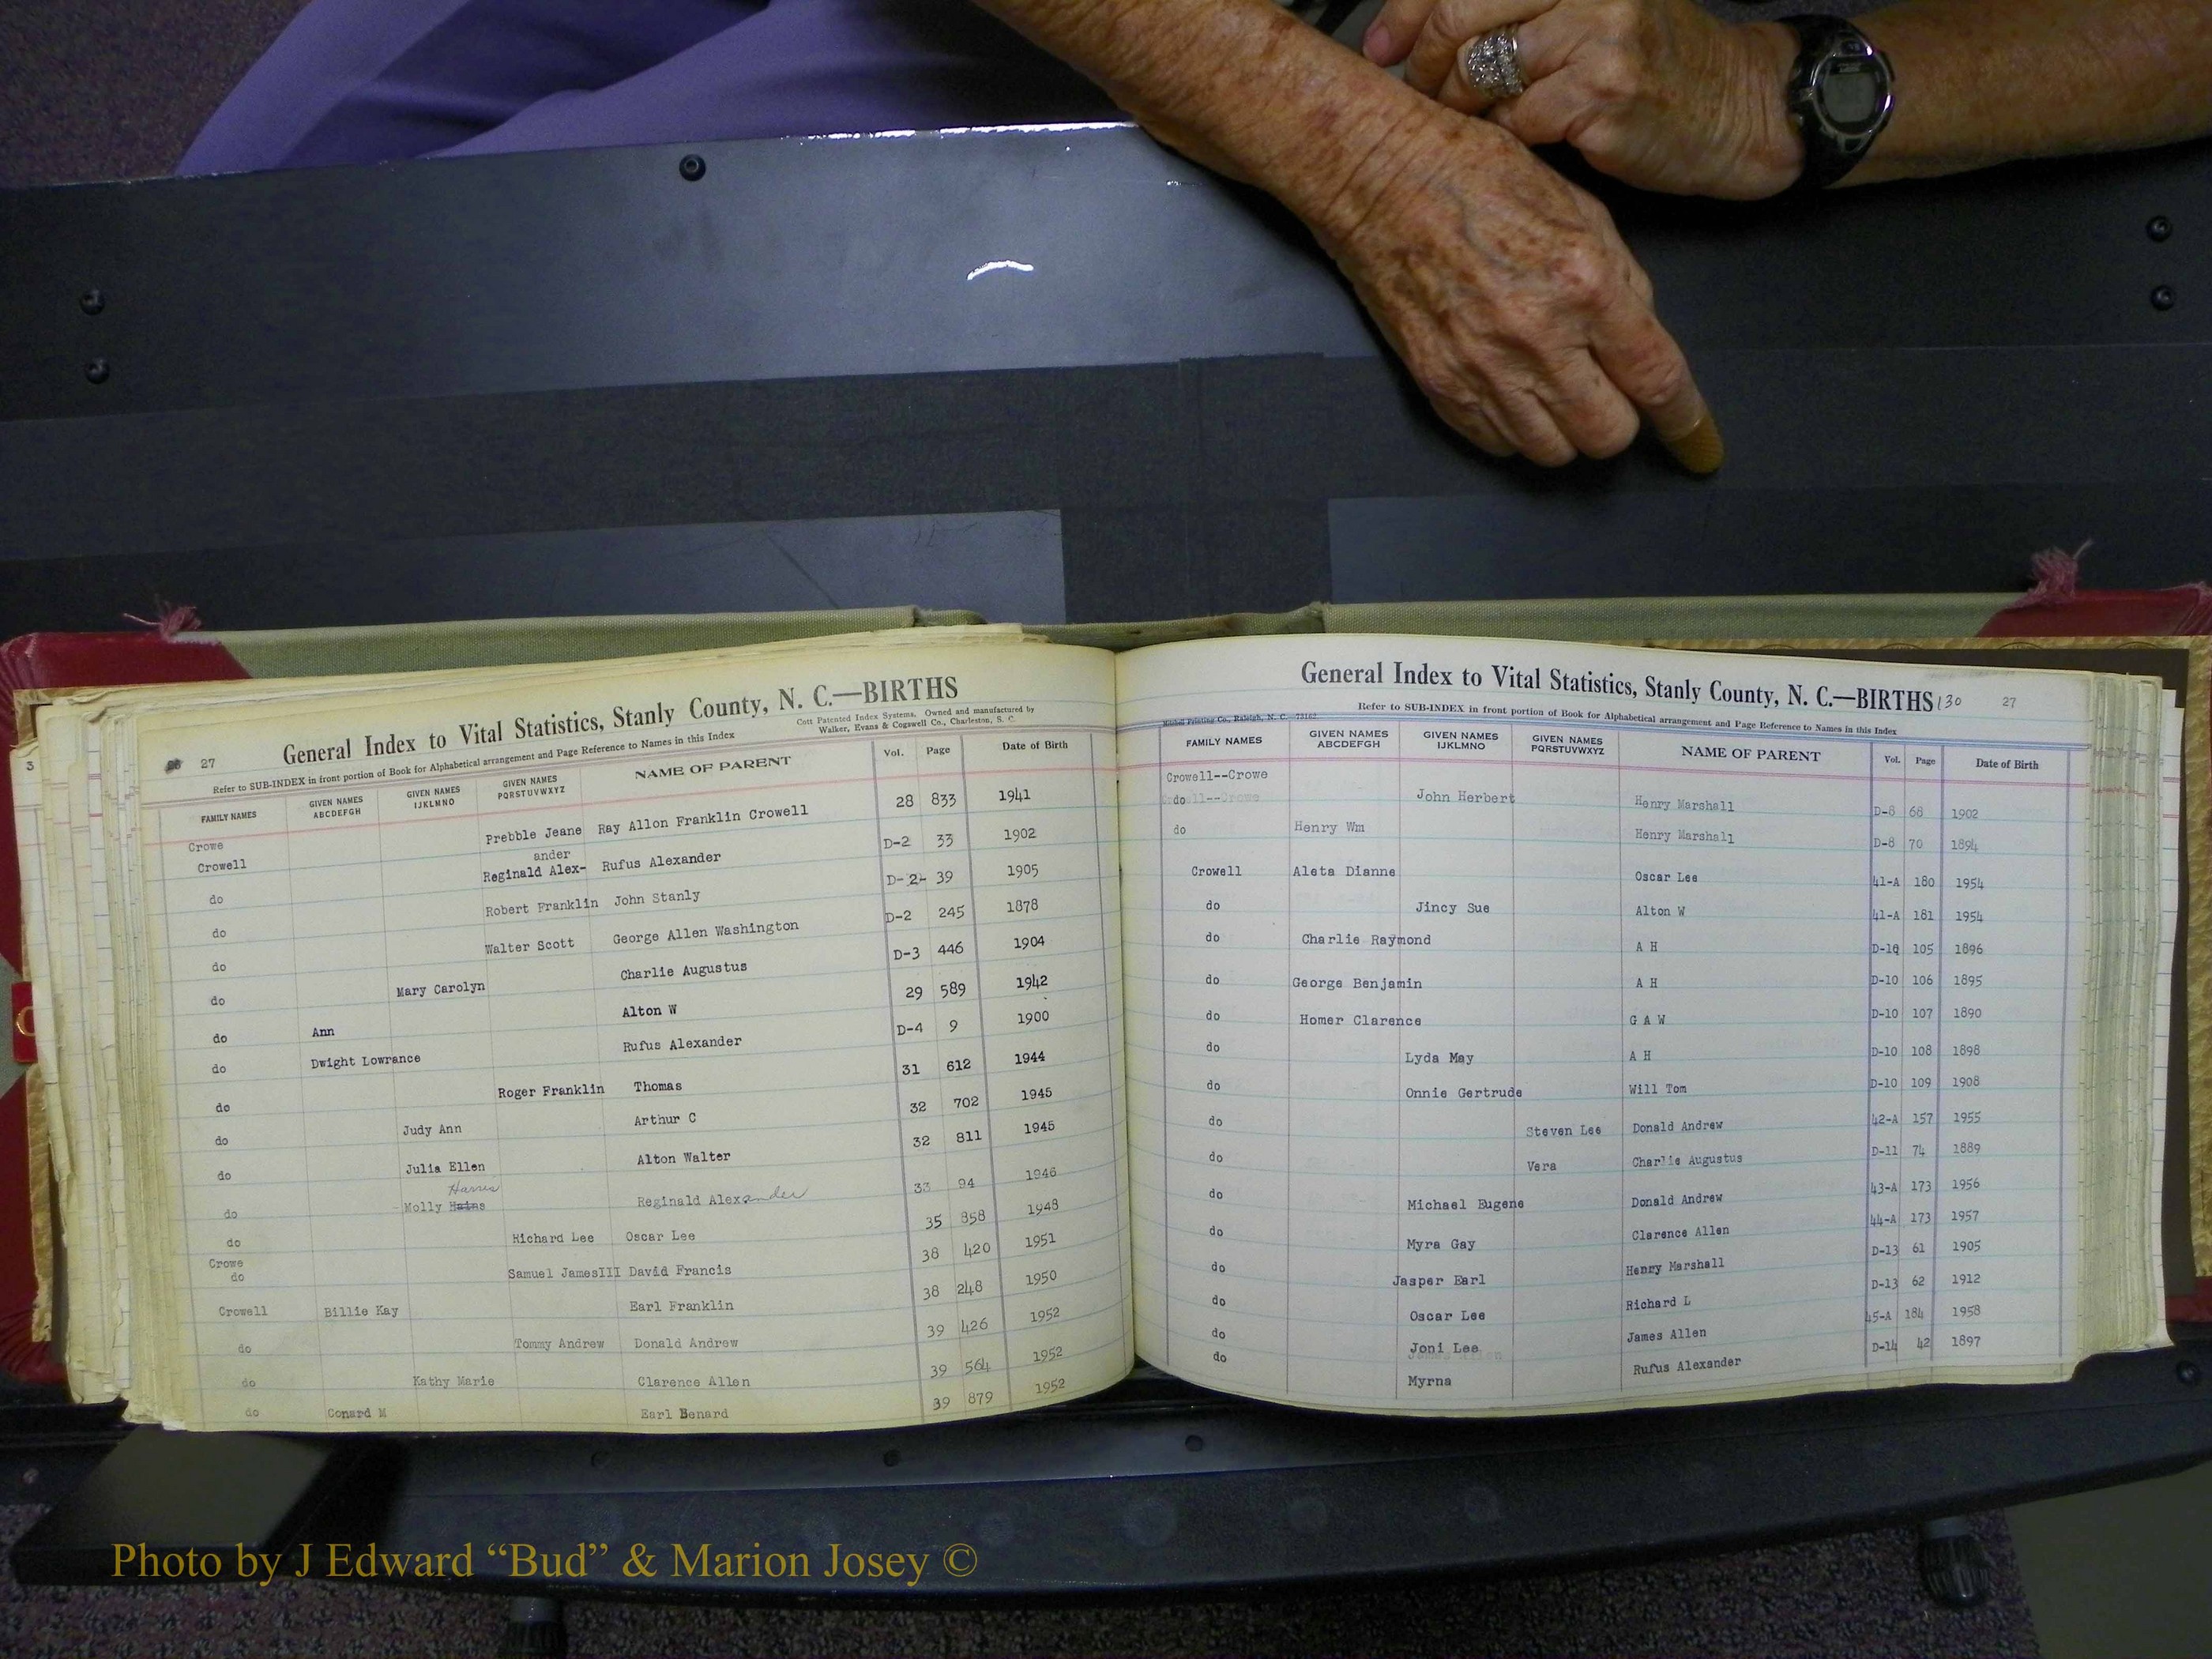 27
General Index to Vital Statistics, Stanly County, N. C.—BIRTHS
Refer to SUB-INDEX in front portion of Book for Alphabetical arrangement and Page Reference to Names in this Index
Cott Patented Index Systems. Owned and manufactured by
Walker, Evans & Cogswell Co., Charleston, S. C.
FAMILY NAMES GIVEN NAMES ABCDEFGH GIVEN NAMES IJKLMNO GIVEN NAMES PQRSTUVWXYZ NAME OF PARENT Vol. Page Date of Birth
Crowe
Crowell Prebble Jeane Ray Allon Franklin Crowell 28 833 1941
ander
do Reginald Alex- Rufus Alexander D-2 33 1902
do Robert Franklin John Stanly D-2- 39 1905
do Walter Scott George Allen Washington D-2 245 1878
do Mary Carolyn Charlie Augustus D-3 446 1904
do Ann Alton W 29 589 1942
do Dwight Lowrance Rufus Alexander D-4 9 1900
do Roger Franklin Thomas 31 612 1944
do Judy Ann Arthur C 32 702 1945
do Julia Ellen Alton Walter 32 811 1945
Harris
do Molly Hains Reginald Alexander 33 94 1946
do Richard Lee Oscar Lee 35 858 1948
Crowe
do Samuel JamesIII David Francis 38 420 1951
Crowell Billie Kay Earl Franklin 38 248 1950
do Tommy Andrew Donald Andrew 39 426 1952
do Kathy Marie Clarence Allen 39 564 1952
do Conard M Earl Benard 39 879 1952
General Index to Vital Statistics, Stanly County, N. C.—BIRTHS 130 27
Refer to SUB-INDEX in front portion of Book for Alphabetical arrangement and Page Reference to Names in this Index
Mitchell Printing Co., Raleigh, N. C.
FAMILY NAMES GIVEN NAMES ABCDEFGH GIVEN NAMES IJKLMNO GIVEN NAMES PQRSTUVWXYZ NAME OF PARENT Vol. Page Date of Birth
Crowell--Crowe
do John Herbert Henry Marshall D-8 68 1902
do Henry Wm Henry Marshall D-8 70 1894
Crowell Aleta Dianne Oscar Lee 41-A 180 1954
do Jincy Sue Alton W 41-A 181 1954
do Charlie Raymond A H D-10 105 1896
do George Benjamin A H D-10 106 1895
do Homer Clarence G A W D-10 107 1890
do Lyda May A H D-10 108 1898
do Onnie Gertrude Will Tom D-10 109 1908
do Steven Lee Donald Andrew 42-A 157 1955
do Vera Charlie Augustus D-11 74 1889
do Michael Eugene Donald Andrew 43-A 173 1956
do Myra Gay Clarence Allen 44-A 173 1957
do Jasper Earl Henry Marshall D-13 61 1905
do Oscar Lee Richard L D-13 62 1912
do Joni Lee James Allen 45-A 184 1958
do Myrna Rufus Alexander D-14 42 1897
Photo by J Edward “Bud” & Marion Josey ©